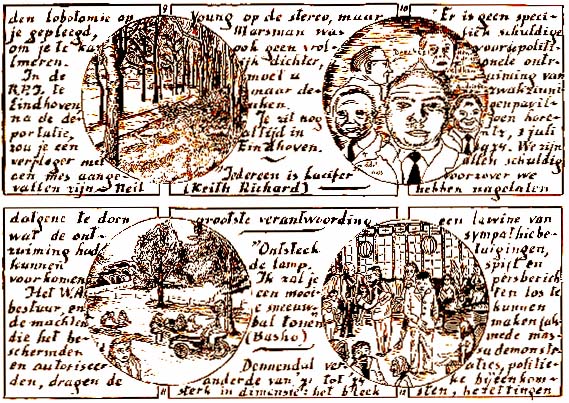 9
den lobotomie op
je gepleegd,
om je te ka
lmeren.
In de
te
Eindhoven
na de de-
portatie,
zou je een
verpleger met
een mes aange-
vallen zijn. Neil
Young op de stereo, maar
Marsman was
ook geen vrol-
ijk dichter,
moet u
maar de-
nken.
Je zit nog
altijd in
Eindhoven.
"Iedereen is Lucifer"
(Keith Richard)
10
"Er is geen speci-
fiek schuldige
ionele ont-
ruiming van
zwakzinni-
genpavil-
joen
3 juli
We zijn
allen schuldig
voorzover we
hebben nagelaten
datgene te doen
wat de ont-
ruiming had
kunnen
voorkomen.
Het W.A.
bestuur, en
de machten
die het be-
schermden
en autoriseer
den, dragen de
11
grootste verantwoording
"Ontsteek
de lamp.
Ik zal je
een mooi-
e sneeuw
bal tonen"
(Basho)
Dennendal ver-
anderde van
sterk in dimensie: het bleek
12
een lawine van
sympathiebe-
tuigingen,
spijt en
persberich
ten los te
kunnen
maken
mede mas-
sa demonstr
aties, politie-
ke bijeenkom-
sten, bezettingen